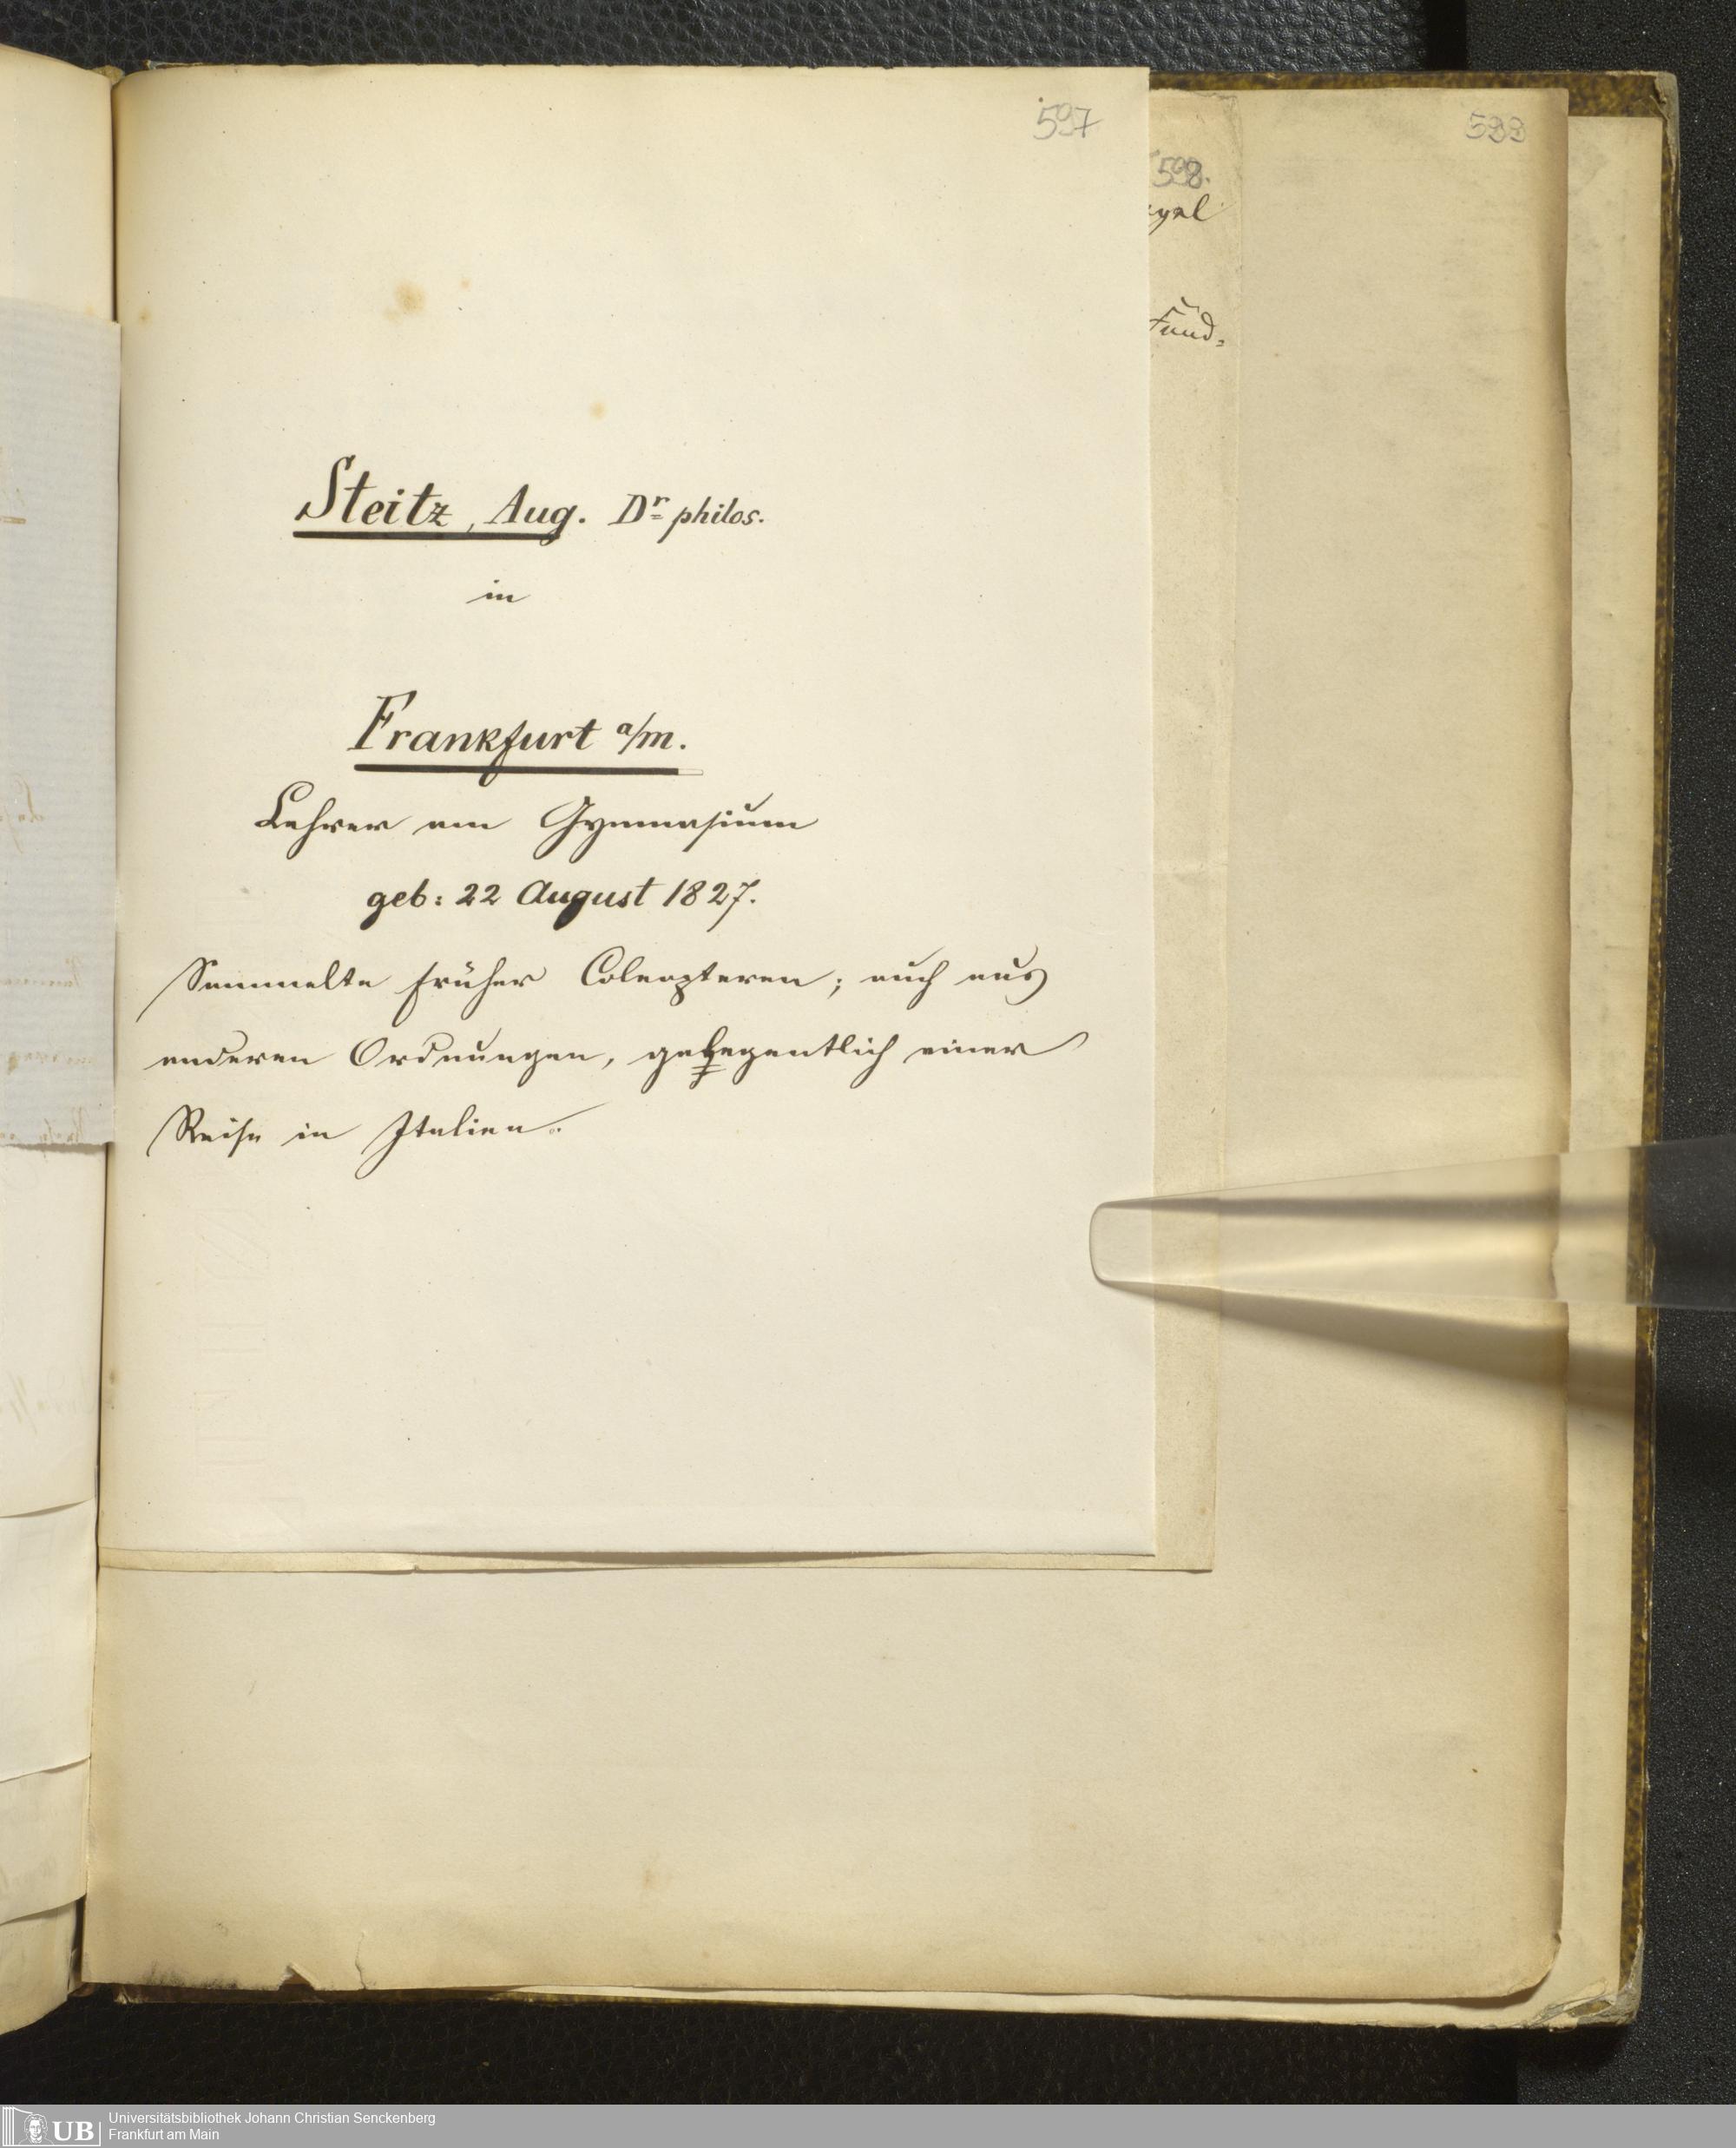 597
598.
599
Fund=
Steitz, Aug. Dr philos.
in
Frankfurt a/m.
Lehrer am Gymnasium
geb: 22 August 1827.
Sammelte früher Coleopteren; auch aus
anderen Ordnungen, gelegentlich einer
Reise in Italien.
UB
Universitätsbibliothek Johann Christian Senckenberg
Frankfurt am Main